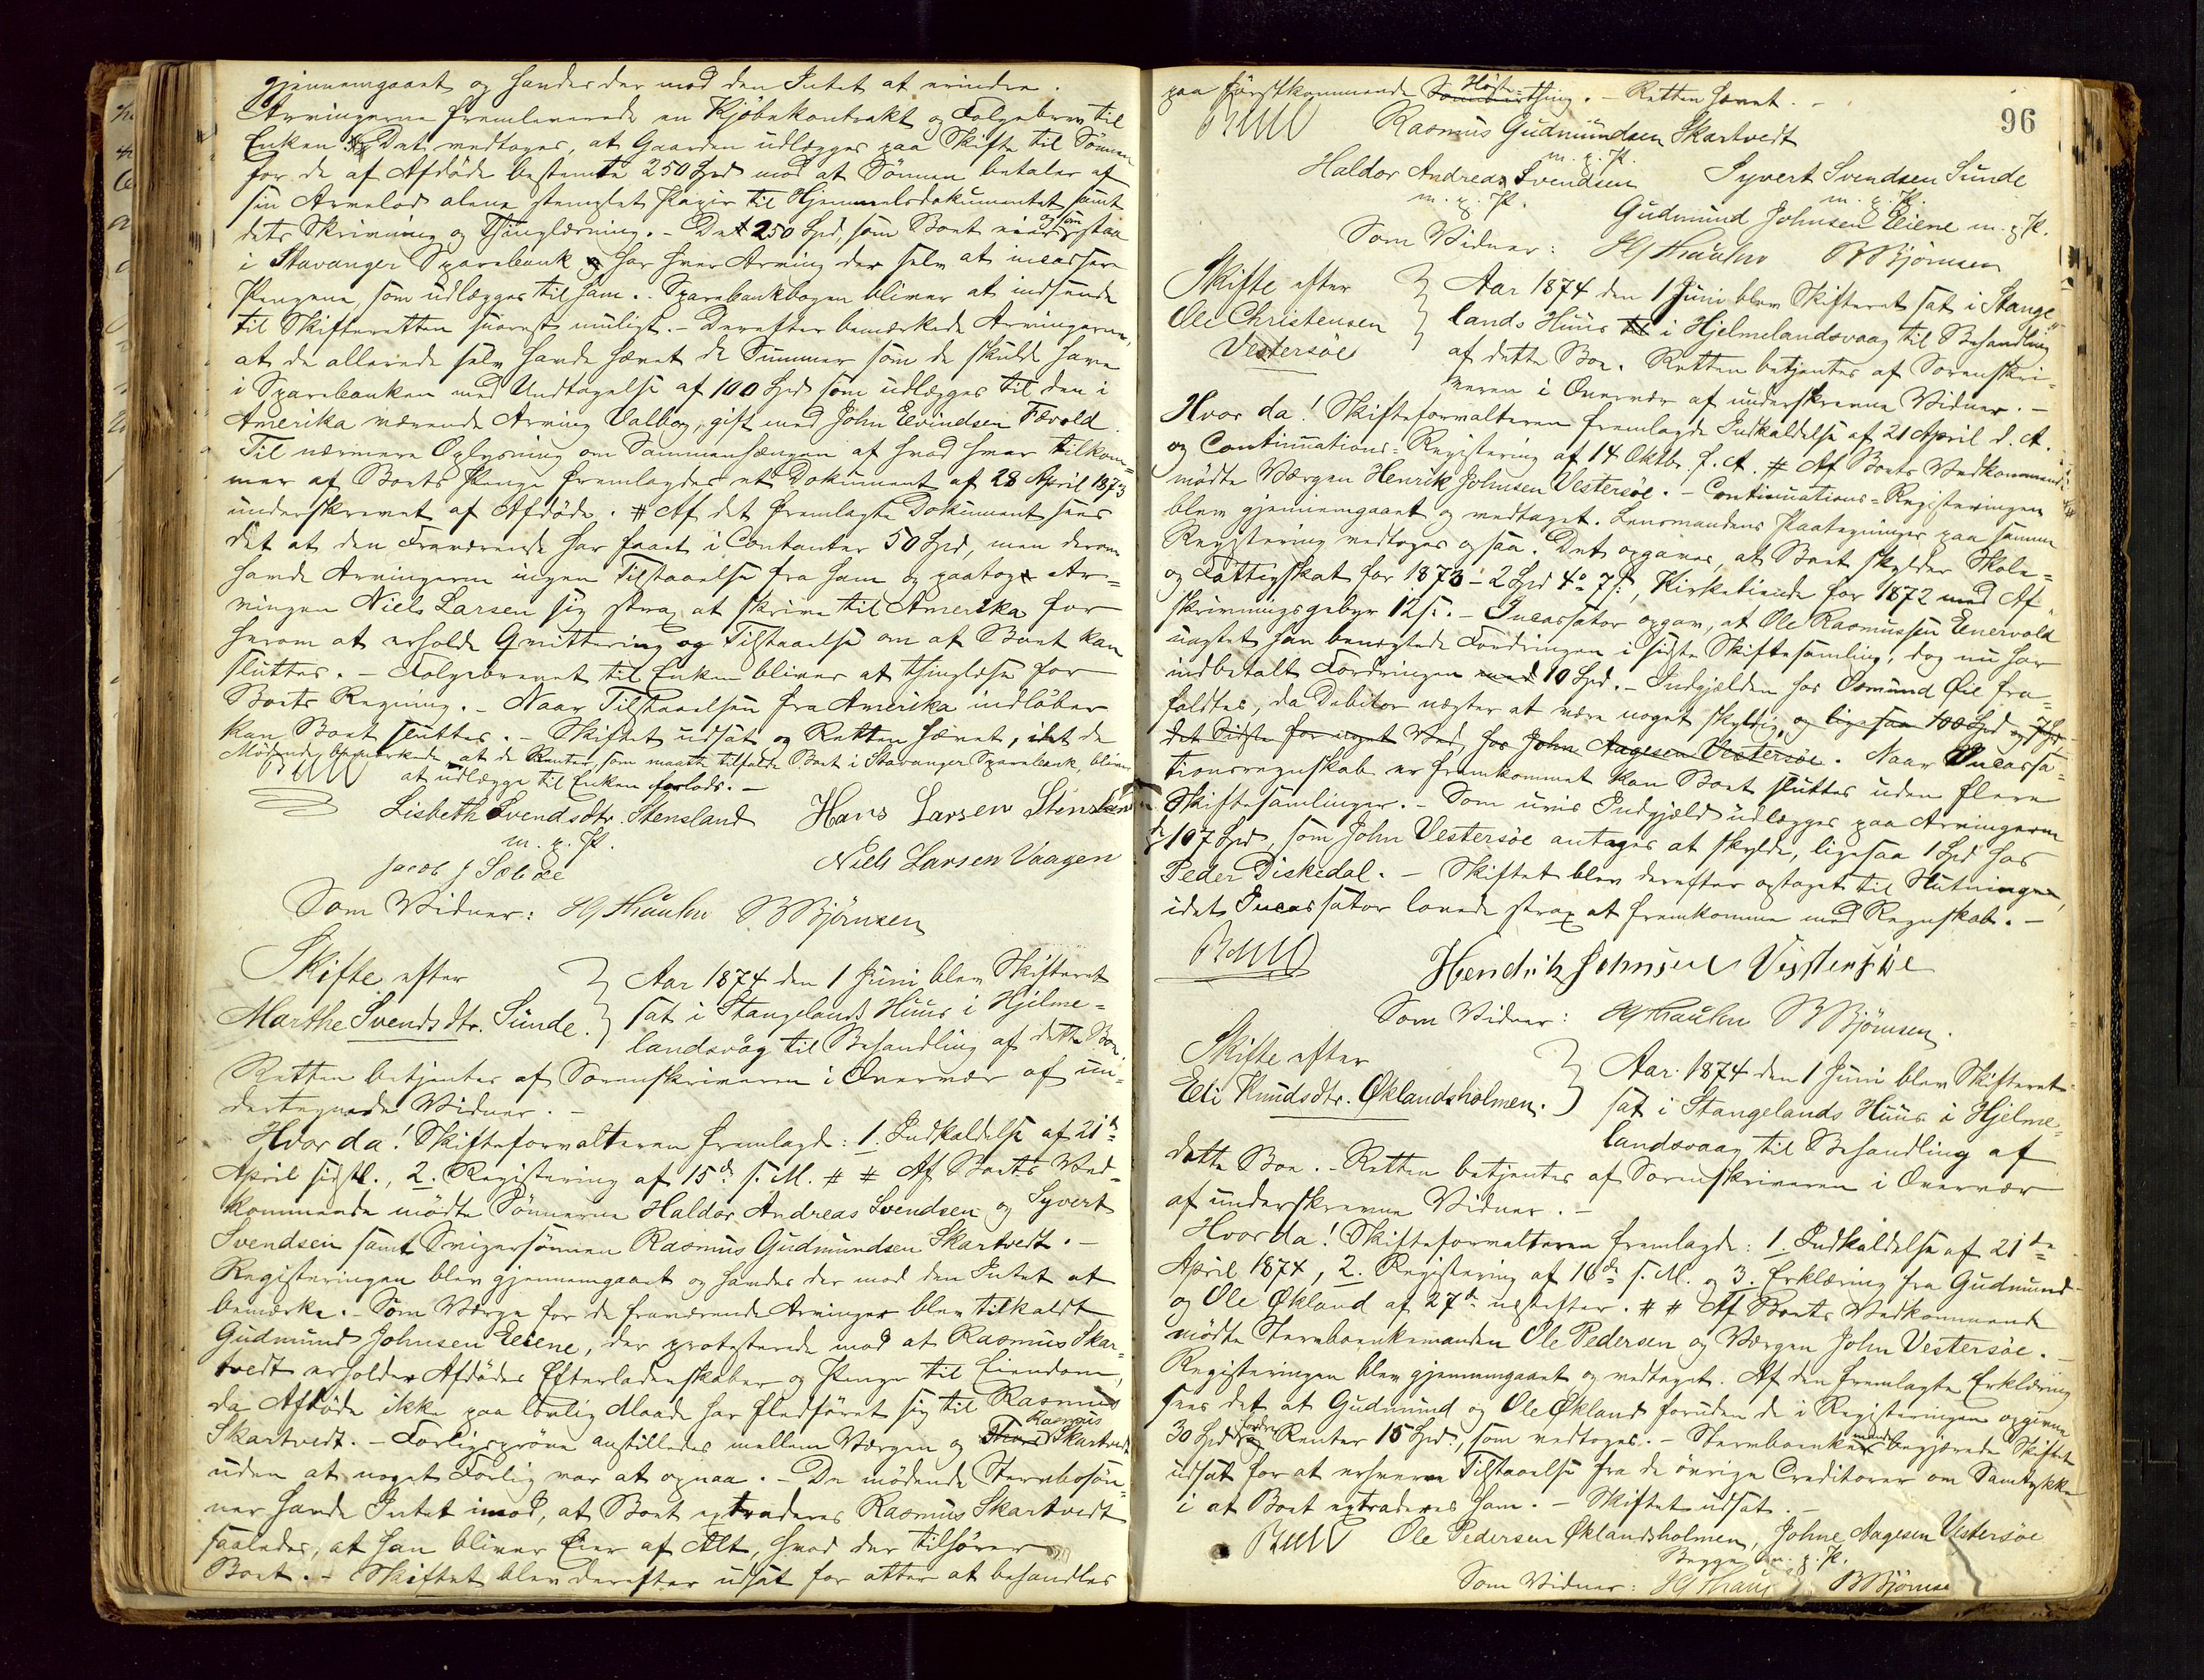 gjennemgaaet og havdes der mod den Intet at erindre.
Arvingerne fremleverede en Kjöbekontrakt og Folgebrev til
Enken. Det vedtoges, at Gaarden udlægges paa Skifte til Sönnen
for de af Afdöde bestemte 250 Spd mod at Sönnen betaler af
sin Arvelod alene stemplet Papir til Hjemmelsdokumentet samt
dets Skrivning og Thinglæsning. - De 250 Spd, som Boet eier og som staa
i Stavanger Sparebank har hver Arving der selv at incassere
Pengene, som udlægges til ham. Sparebankbogen bliver at indsende
til Skifteretten snarest muligt. - Derefter bemærkede Arvingerne,
at de allerede selv havde hævet de Summer som de skulde have
i Sparebanken med Undtagelse af 100 Spd som udlægges til den i
Amerika værende Arving Valbog, gift med John Eevindsen Tævold.
Til nærmere Oplysning om Sammenhængen af hvad hver tilkom=
mer af Boets Penge fremlagdes et Dokument af 28 April 1873
underskrevet af Afdöde. # Af det fremlagte Dokument sees
det at den Fraværende har faaet i Contanter 50 Spd, men derom
havde Arvingerne ingen Tilstaaelse fra ham og paatog Ar=
vingen Niels Larsen sig strax at skrive til Amerika for
herom at erholde Qvittering og Tilstaaelse om at Boet kan
sluttes. - Folgebrevet til Enken bliver at thinglæse for
Boets Regning. - Naar Tilstaaelsen fra Amerika indlöber
kan Boet sluttes. - Skiftet udsat og Retten hævet, idet de
Mödende bemærkede, at de Renter, som maatte tilfalde Boet i Stavanger Sparebank, bliver
at udlægge til Enken forlods. -
Lisbeth Svendsdtr. Stensland Hans Larsen Stensland
m. p. P.
Jacob J Sæbøe Niels Larsen Vaagen
Som Vidner: B Bjørnsen
Skifte efter
Marthe Svendsdtr. Sunde.
Aar 1874 den 1 Juni blev Skifteret
sat i Stangelands Huus i Hjelme=
landsvåg til Behandling af dette Boe.
Retten betjentes af Sorenskriveren i Overvær af un=
dertegnede Vidner. -
Hvor da! Skifteforvalteren fremlagde: 1. Indkaldelse af 21de
April sidstl., 2. Registering af 15de s. M. # # Af Boets Ved=
kommende mödte Sönnerne Haldor Andreas Svendsen og Syvert
Svendsen samt Svigersönnen Rasmus Gudmundsen Skartvedt. -
Registeringen blev gjennemgaaet og havdes der mod den Intet at
bemærke. - Som Værge for de fraværende Arvinger blev tilkaldt
Gudmund Johnsen Eeiene, der protesterede mod at Rasmus Skar=
tvedt erholder Afdödes Efterladenskaber og Penge til Eiendom,
da Afdöde ikke paa lovlig Maade har fledföret sig til Rasmus
Skartvedt. - Forligspröve anstilledes mellem Værgen og Rasmus Skartvedt
uden at noget Forlig var at opnaa. - De mödende Stervbosön=
ner havde Intet imod, at Boet extraderes Rasmus Skartvedt
saaledes, at han bliver Eier af Alt, hvad der tilhörer
Boet. - Skiftet blev derefter udsat for atter at behandles
96
paa förstkommende Höstthing. - Retten hævet. -
Rasmus Gudmundsen Skartvedt
m. p. P.
Haldor Andreas Svendsen Syvert Svendsen Sunde
m. p. P. m. p. P.
Gudmund Johnsen Eiene m. p. P.
Som Vidner: B Bjørnsen
Skifte efter
Ole Christensen
Vestersöe
Aar 1874 den 1 Juni blev Skifteret sat i Stange=
lands Huus i Hjelmelandsvaag til Behandling
af dette Boe. Retten betjentes af Sorenskri=
veren i Overvær af underskrevne Vidner. -
Hvor da! Skifteforvalteren fremlagde Indkaldelse af 21 April d. A.
og Continuations=Registering af 14 Oktb. f. A. # Af Boets Vedkommende
mödte Værgen Henrik Johnsen Vestersöe. - Continuations=Registeringen
blev gjennemgaaet og vedtaget. Lensmandens Paategninger paa samme
Registering vedtoges ogsaa. Det opgaves, at Boet skylder Skole=
og Fattigskat for 1873 - 2 Spd 4o 7s, Kirketiende for 1872 med Af=
skrivningsgebyr 12s. - Incassator opgav, at Ole Rasmussen Eenervold
uagtet han benegtede Fordringen i sidste Skiftesamling, dog nu har
indbetalt Fordringen med 10 Spd. - Indgjælden hos Osmund Öie fra=
faldtes, da Debitor nægter at være noget skyldig, og ligesaa 100 Spd og 7 Spd
det Sidste for noget Ved, hos John Aagesen Vestersöe. Naar Incassa=
tionsregnskab er fremkommet kan Boet sluttes uden flere
Skiftesamlinger. - Som uvis Indgjæld udlægges paa Arvingerne
107 Spd, som John Vestersöe antages at skylde, ligesaa 1 Spd hos
Peder Diskedal. - Skiftet blev derefter optaget til Slutningen,
idet Incassator lovede strax at fremkomme med Regnskab. -
Hendrik Johnsen Vestersöe
Som Vidner: B Bjørnsen.
Skifte efter
Eli Knudsdtr. Øklandsholmen.
Aar 1874 den 1 Juni blev Skifteret
sat i Stangelands Huus i Hjelme=
landsvaag til Behandling af
dette Boe. - Retten betjentes af Sorenskriveren i Overvær
af underskrevne Vidner. -
Hvor da! Skifteforvalteren fremlagde: 1. Indkaldelse af 21de
April 1874, 2. Registering af 16de s. M. og 3. Erklæring fra Gudmund
og Ole Økland af 27de næstefter. # # Af Boets Vedkommende
mödte Stervboenkemanden Ole Pedersen og Værgen John Vestersöe. -
Registeringen blev gjennemgaaet og vedtaget. Af den fremlagte Erklæring
sees det at Gudmund og Ole Økland foruden de i Registeringen opgivne
30 Spd fordrer Renter 15 Spd, som vedtoges. - Stervboenkemanden begjærede Skiftet
udsat for at erhverve Tilstaaelse fra de övrige Creditorer om Samtykke
i at Boet extraderes ham. - Skiftet udsat. -
Ole Pedersen Øklandsholmen, Johne Aagesen Vestersöe
Begge m. p. P.
Som Vidner: B Bjørnse